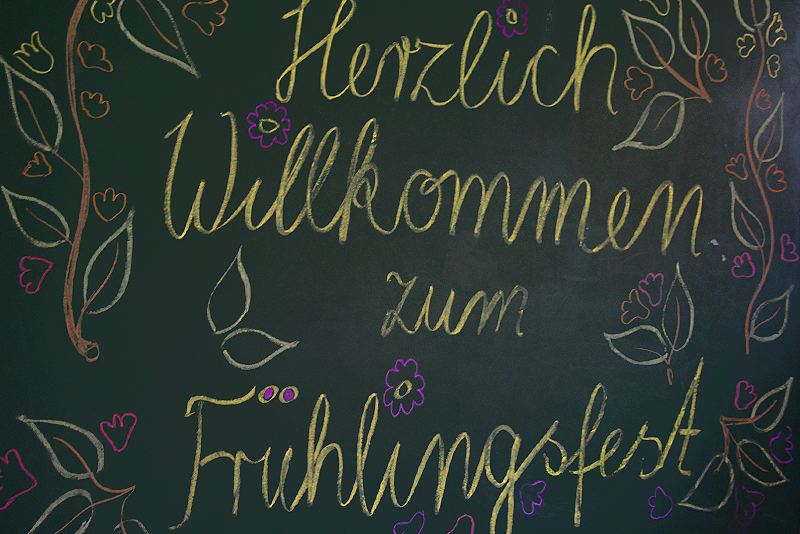 Herzlich
Willkommen
zum
Frühlingsfest